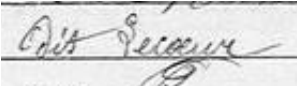 Dit Lecoeur